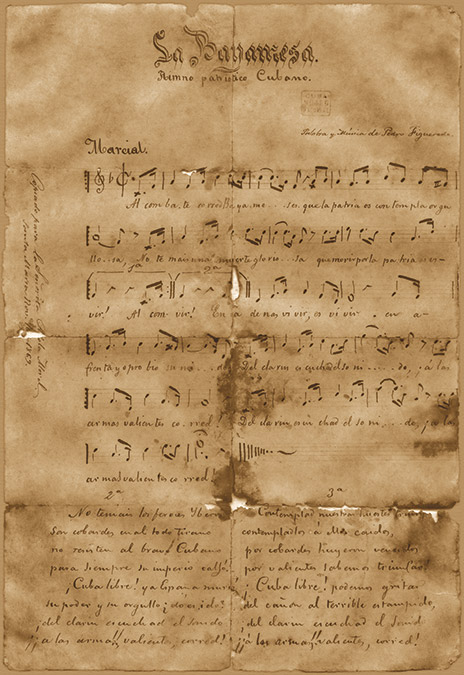 La Bayamesa.
Himno patriótico Cubano.
Palabra y Música de Pedro Figueredo
Marcial.
Al com ba. te corred Ba ya me... ses, que la patria os con templa orgu
llo.. sa, No te mais una muerte glorio... sa que morir por la patria es vi
1a 2a
vir! Al com. vir! En ca de nas, vi vir, es vi vir en a
frenta y oprobio su mi... do, Del clarin escuchad el so ni.... do, ¡a las
armas valientes co.. rred! Del clarin, escuchad el so ni... do, ¡a las
armas valientes co.. rred!
2a
No temais los feroces Iberos
Son cobardes cual todo Tirano
no resisten al bravo Cubano
para siempre su imperio cayó.
¡Cuba libre! ya España murió
su poder y su orgullo ¿do es ido?
¡del clarin escuchad el sonido
¡¡a las armas!! valientes, corred!
3a
Contemplad nuestras huestes
contempladlos á ellos caidos,
por cobardes huyeron vencidos
por valientes sabemos triunfar.
¡Cuba libre! podemos gritar
del cañon al terrible estampido,
¡del clarin escuchad el sonido
¡¡á las armas!! valientes, corred!
Copiado para la Señorita